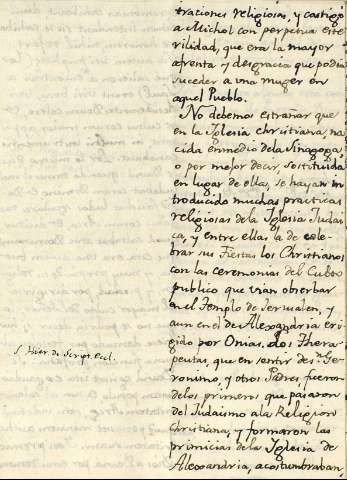 traciones religiosas, y castigò
a Michol con perpetua este
rilidad, que era la mayor
afrenta y desgracia que podia
suceder a una muger en
aquel Pueblo.
No debemos estrañar que
en la Iglesia christiana, na
cida enmedio dela Sinagoga,
o por mejor decir, sostituida
en lugar de ellas, se hayan in
troducido muchas practicas
religiosas dela Iglesia Judai
ca, y entre ellas la de cele
brar sus Fiestas los Christianos
con las ceremonias del Culto
publico que vian obserbar
en el Templo de Jerusalen, y
aun en el de Alexandria eri
gido por Onias. Los Thera
peutas, que en sentir de S.n Ge
ronimo, y otros Padres fueron
delos primeros que pasaron
del Judaismo ala Religion
Christiana, y formaron las
primicias dela Iglesia de
Alexandria, acostumbraban,
S. Hier. de Script. Ecl.